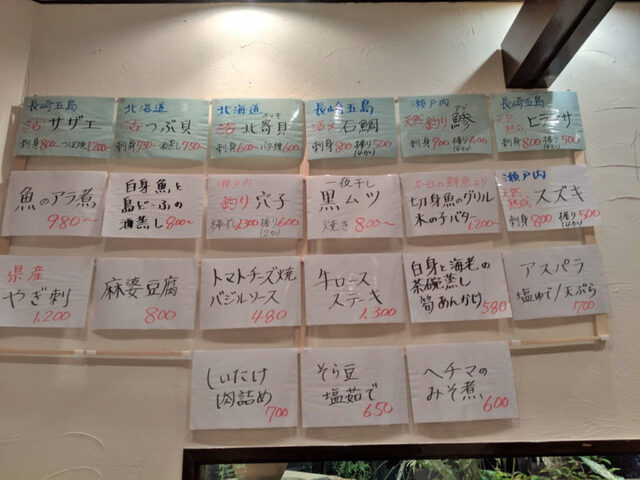 長崎五島
活 サザエ
刺身800〜 つぼ焼1,200〜
北海道
活 つぶ貝
刺身750〜 酒蒸し950〜
北海道
活 北寄貝
ホッキ
刺身600〜 バタ焼600〜
長崎五島
活〆 石鯛
刺身800 握り500
(4カン)
瀬戸内
天然釣り 鯵
アジ
刺身900 握り600
(4カン)
長崎五島
天然熟成 ヒラマサ
刺身800 握り500
(4カン)
魚のアラ煮
980〜
白身魚と
島どーふの
酒蒸し 800〜
瀬戸内
釣り 穴子
棒ずし1,300 握り600
(2カン)
一夜干し
黒ムツ
焼き 800〜
本日の鮮魚より
切身魚のグリル
木の子バター
1,200〜
瀬戸内
天然熟成 スズキ
刺身800 握り500
(4カン)
県産
やぎ刺
1,200
麻婆豆腐
800
トマトチーズ焼
バジルソース
480
牛ロース
ステーキ
1,300
白身と海老の
茶碗蒸し
筍あんかけ 580
アスパラ
塩ゆで/天ぷら
700
しいたけ
肉詰め
700
そら豆
塩茹で
650
ヘチマの
みそ煮
600